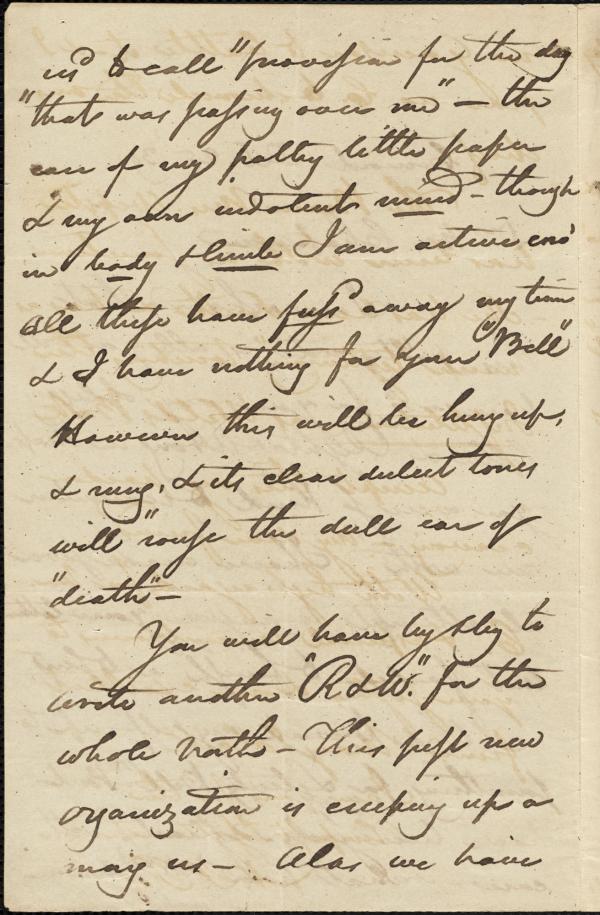 us'd to call "provision for the day
"that was passing over me" — the
care of my paltry little paper
& my own indolent mind - though
in body & limb I am active eno'
all these have fuss'd away my time
& I have nothing for your "Bell"
However this will be hung up,
& rung, & its clear dulcet tones
will "rouse the dull ear of
"death" —
You will have by & by to
write another "R & W." for the
whole North — This pest new
organization is creeping up a
mong us — Alas we have